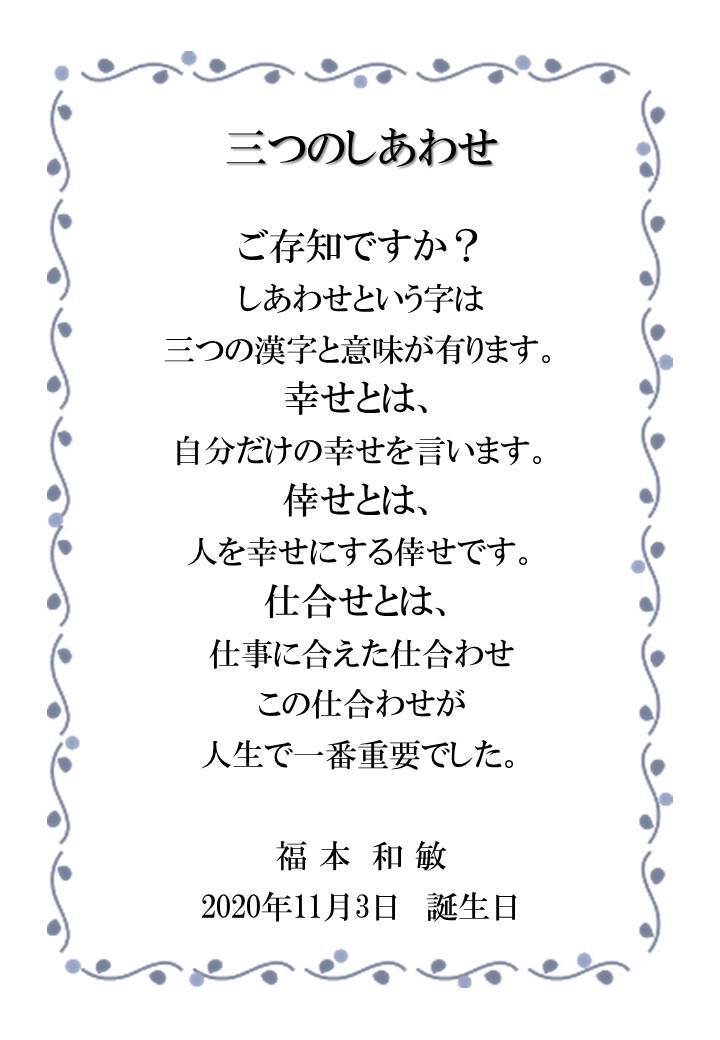 三つのしあわせ
ご存知ですか？
しあわせという字は
三つの漢字と意味が有ります。
幸せとは、
自分だけの幸せを言います。
倖せとは、
人を幸せにする倖せです。
仕合せとは、
仕事に合えた仕合わせ
この仕合わせが
人生で一番重要でした。
福本 和敏
2020年11月3日 誕生日